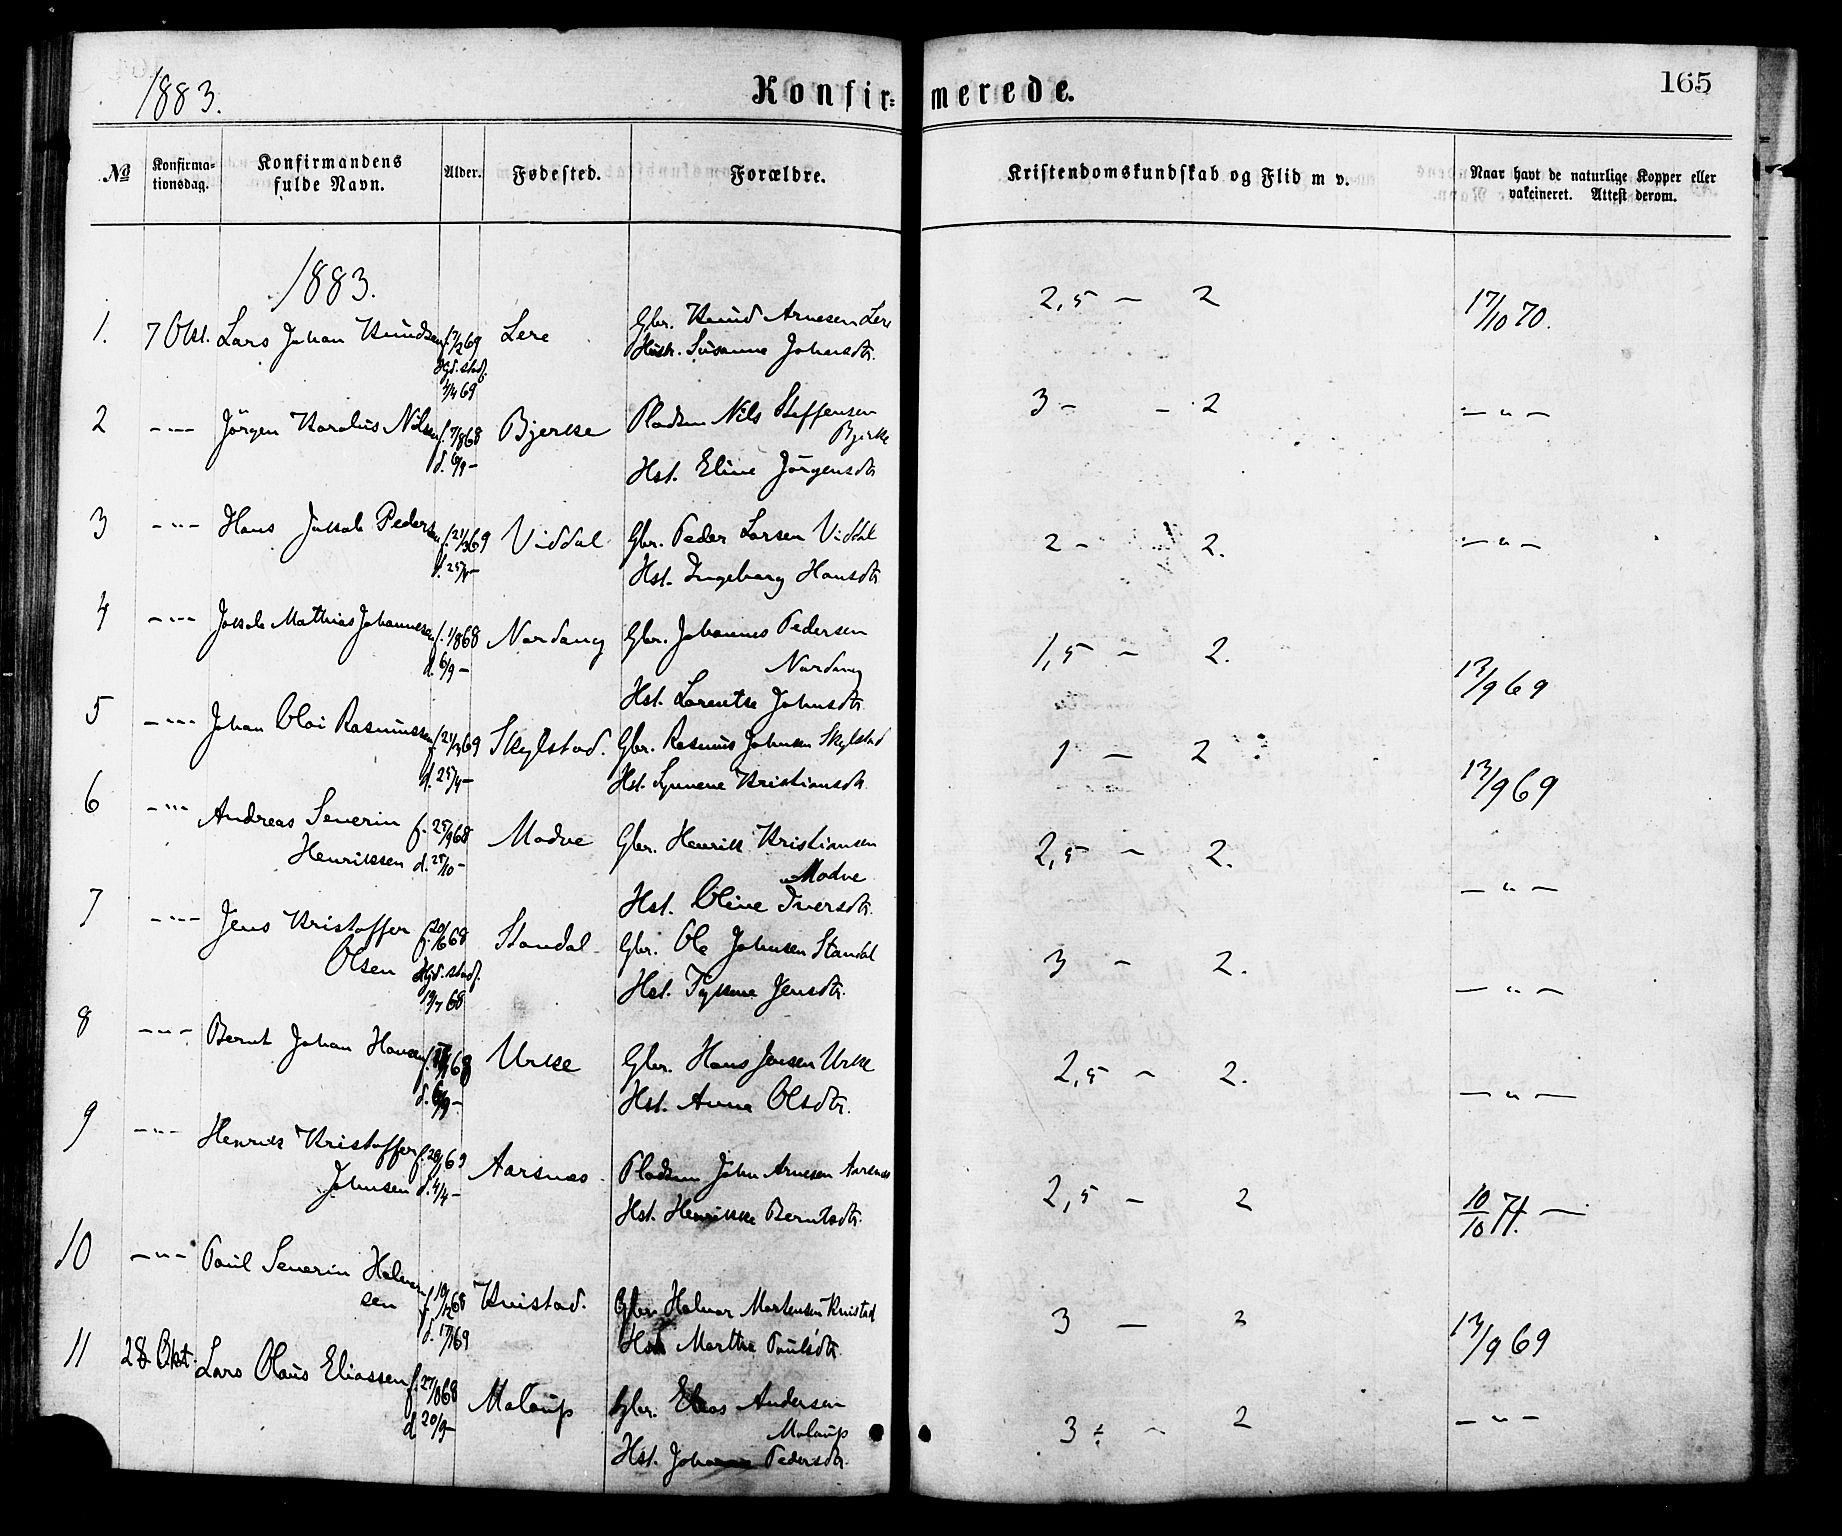 1883.
Konfirmerede.
165
№
Konfirma-
tionsdag.
Konfirmandens
fulde Navn.
Alder.
Fødested.
Forældre.
Kristendomskundskab og Flid m v.
Naar havt de naturlige Kopper eller
vakcineret. Attest derom.
1883.
1. 7 Okt. Lars Johan Knudsen f. 7/2 69 Lere Gbr. Knud Arnesen Lere 2,5 — 2 17/10 70.
Hustr. Susanne Johansdtr.
Hjd. stad.
4/4 69
2 —"— Jörgen Karolus Nilsen f. 7/8 68 Bjerke Pladsm Nils Steffensen 3 — — 2 — " —
Bjerke
d. 6/9 — Hst. Eline Jörgensdtr
3 —"— Hans Jakob Pedersen f. 21/3 69 Viddal Gbr. Peder Larsen Viddal 2 — 2. — " —
d. 25/4 — Hst. Ingeborg Hansdtr
4 —"— Jakob Mathias Johannesen f. 1/8 68 Nordang Gbr. Johannes Pedersen 1,5 — 2. 13/9 69
d. 6/9 — Nordang
Hst. Lorentse Johnsdtr
5 —"— Johan Oloi Rasmussen f. 21/3 69 Skylstad. Gbr. Rasmus Johnsen Skylstad 1 — 2 13/9 69
d. 25/4 — Hst. Synneve Kristiansdtr
6 —"— Andreas Severin f. 25/9 68 Modve Gbr. Henrik Kristiansen 2,5 — 2. — " —
Henriksen d. 25/10 — Modve
Hst. Oline Iversdtr.
7 —"— Jens Kristoffer f. 20/6 68 Standal Gbr. Ole Johnsen Standal 3 — 2. — " —
Olsen Hjd. stad.
19/7 68 Hst. Jensdtr.
8 —"— Bernt Johan Hansen 68 Urke Gbr. Hans Jensen Urke 2,5 — 2. — " —
d. 6/9 — Hst. Anne Olsdtr.
9 —"— Henrik Kristoffer f. 69 Aarsnes Pladsm John Arnesen Aarsnes 2,5 — 2 10/10 71. —
Johnsen d. 4/4 — Hst. Henrikke Berntsdtr.
10 —"— Paul Severin Halvor f. 19/12 68 Knistad. Gbr. Halvor Mortensen Knistad 3 — 2 13/9 69
sen d. 17/1 69 Hst Marthe Paulsdtr
11 28 Okt. Lars Olaus Eliassen f. 27/8 68 Molaup Gbr. Elias Andersen 3 — 2 — " —
d 20/9 — Molaup
Hst. Johanne Pedersdtr.